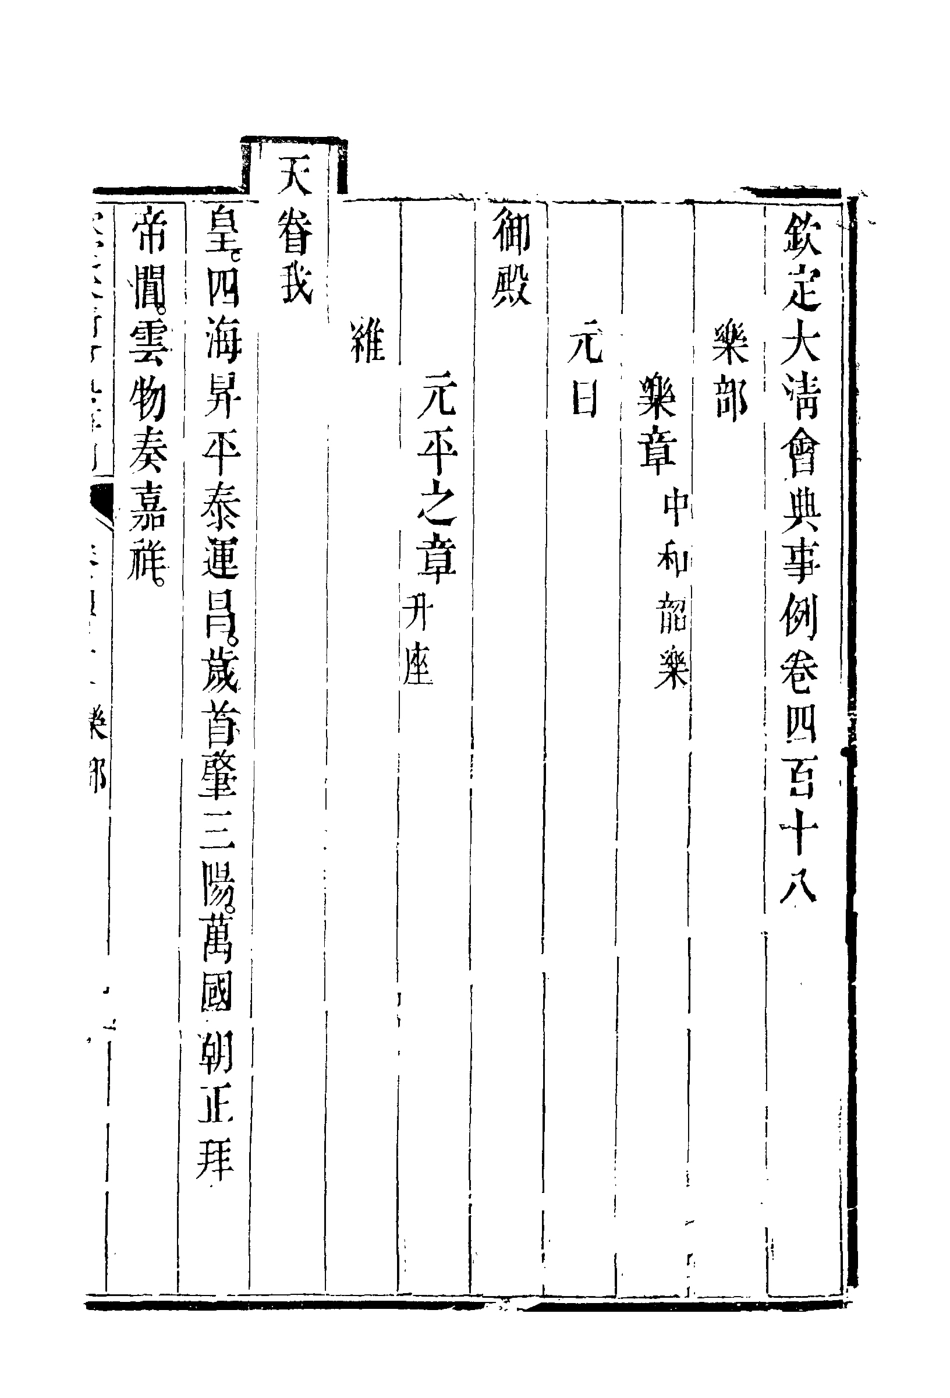 欽定大清會典事例卷四百十八
樂部
樂章中和韶樂
元日
御殿
元平之章升座
維
天眷我
皇。四海昇平泰運昌。歲首肇三陽。萬國朝正拜
帝閶。雲物奏嘉祥。
樂部